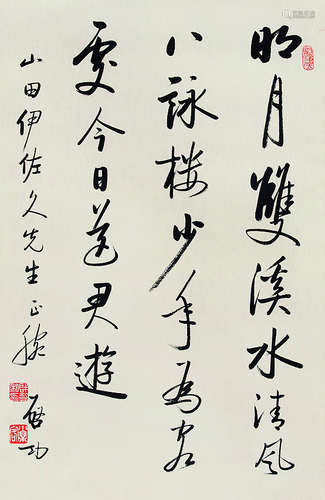 明月雙溪水清風
八詠樓少年為客
處今日送君遊
山田伊佐久先生正腕
啓功